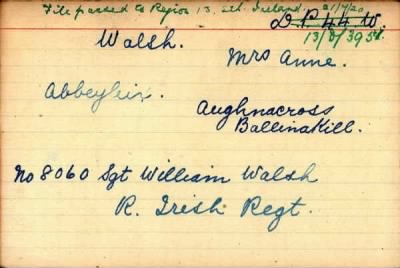 File passed to Region 13, Sth. Ireland. 21/7/20
D.P.44.W.
13/D/3958.
Walsh.
Mrs Anne.
Abbeyleix.
Aughnacross
Ballinakill.
No 8060 Sgt William Walsh
R. Irish Regt.